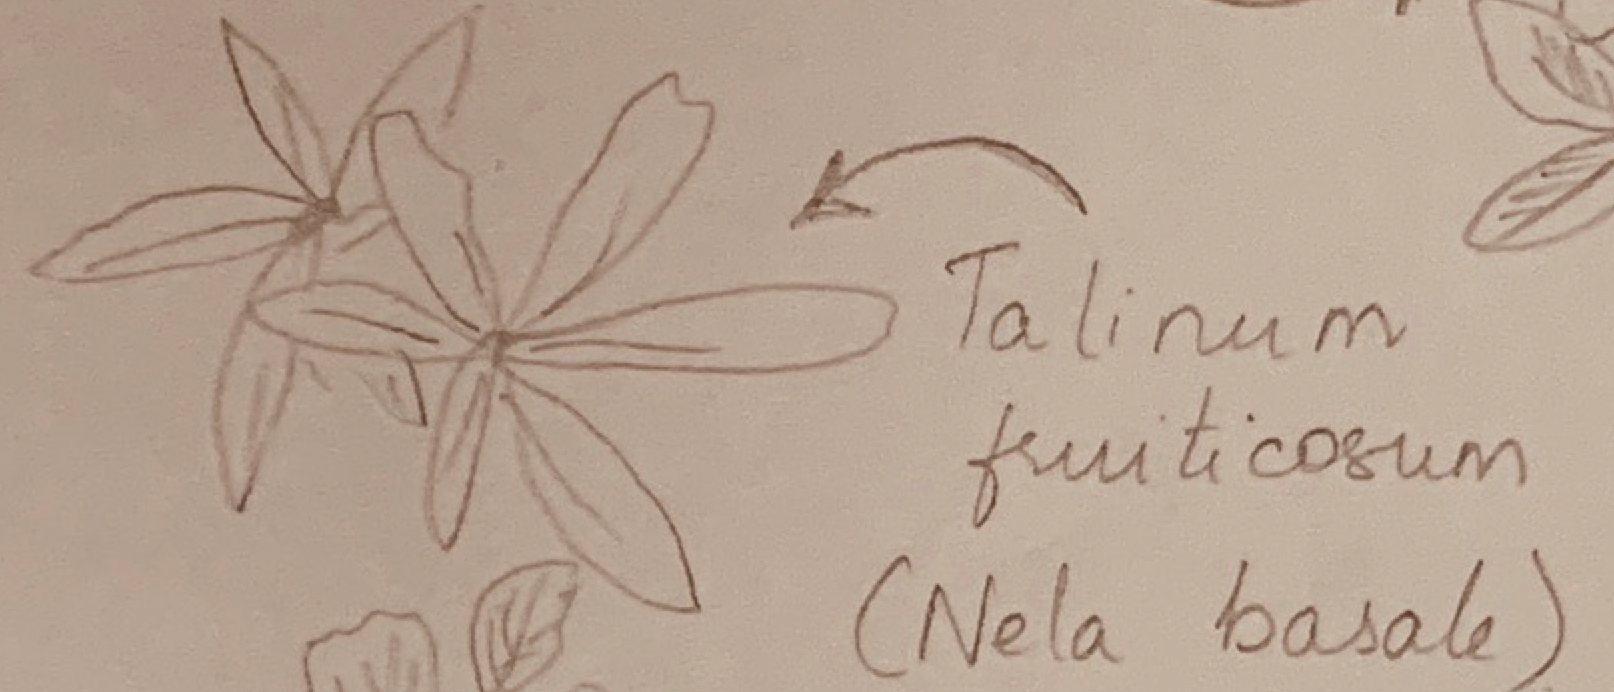 Talinum
fruiticosum
(Nela basale)